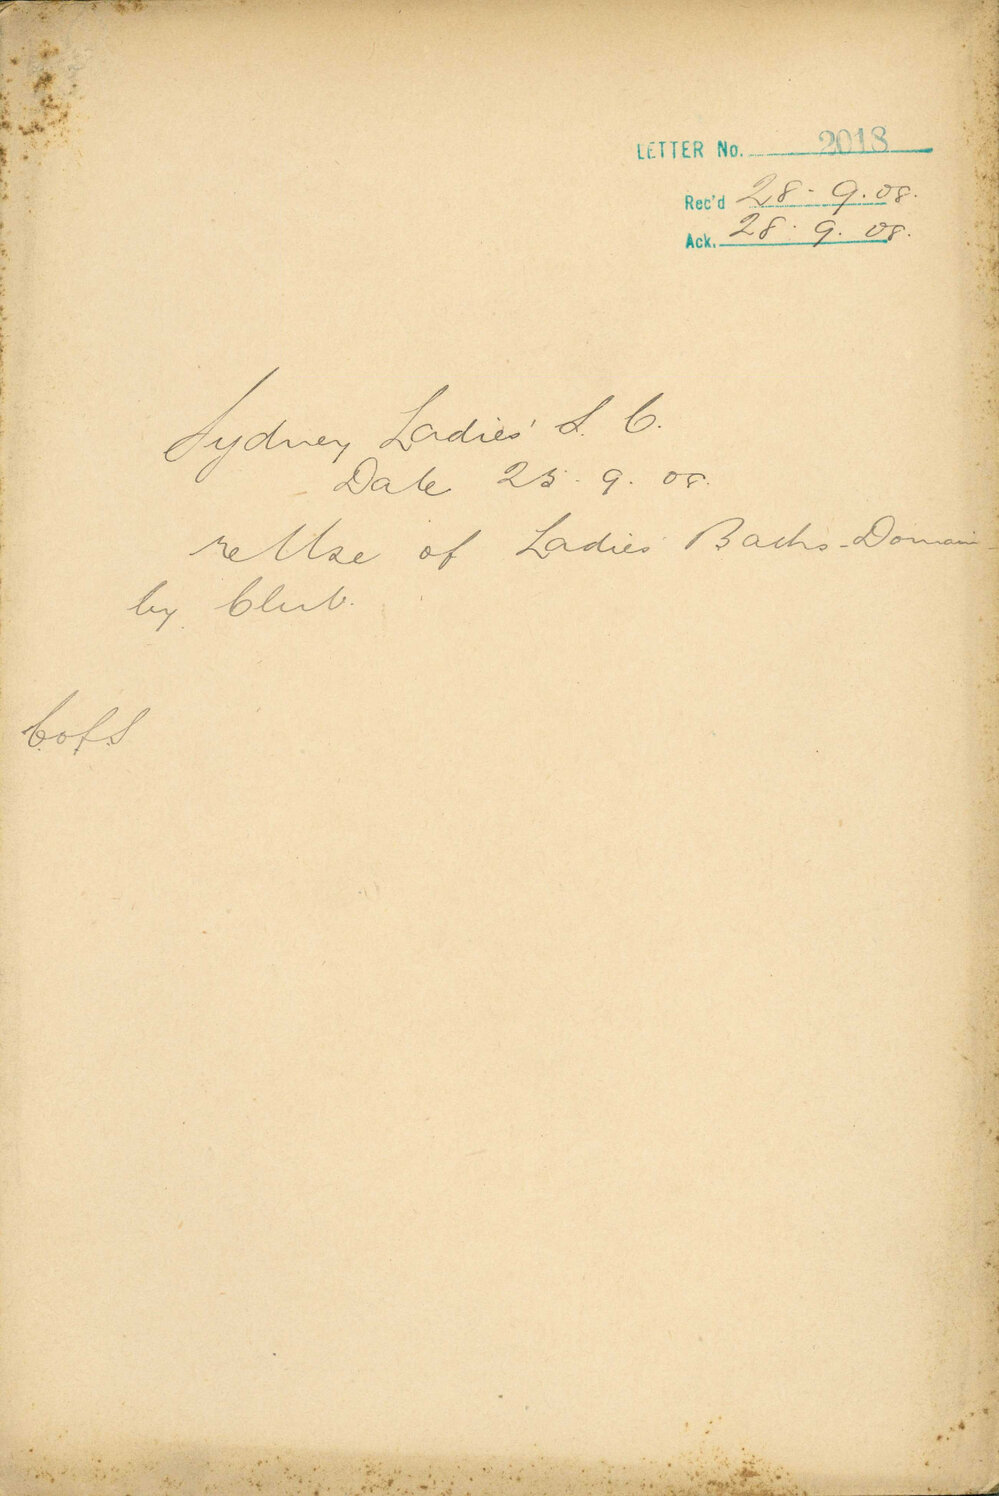 LETTER No. 2018
Rec'd 28.9.08.
Ack. 28.9.08.
Sydney Ladies' S. C.
Date 25.9.08.
re Use of Ladies' Baths - Domain -
by Club.
C.of.S